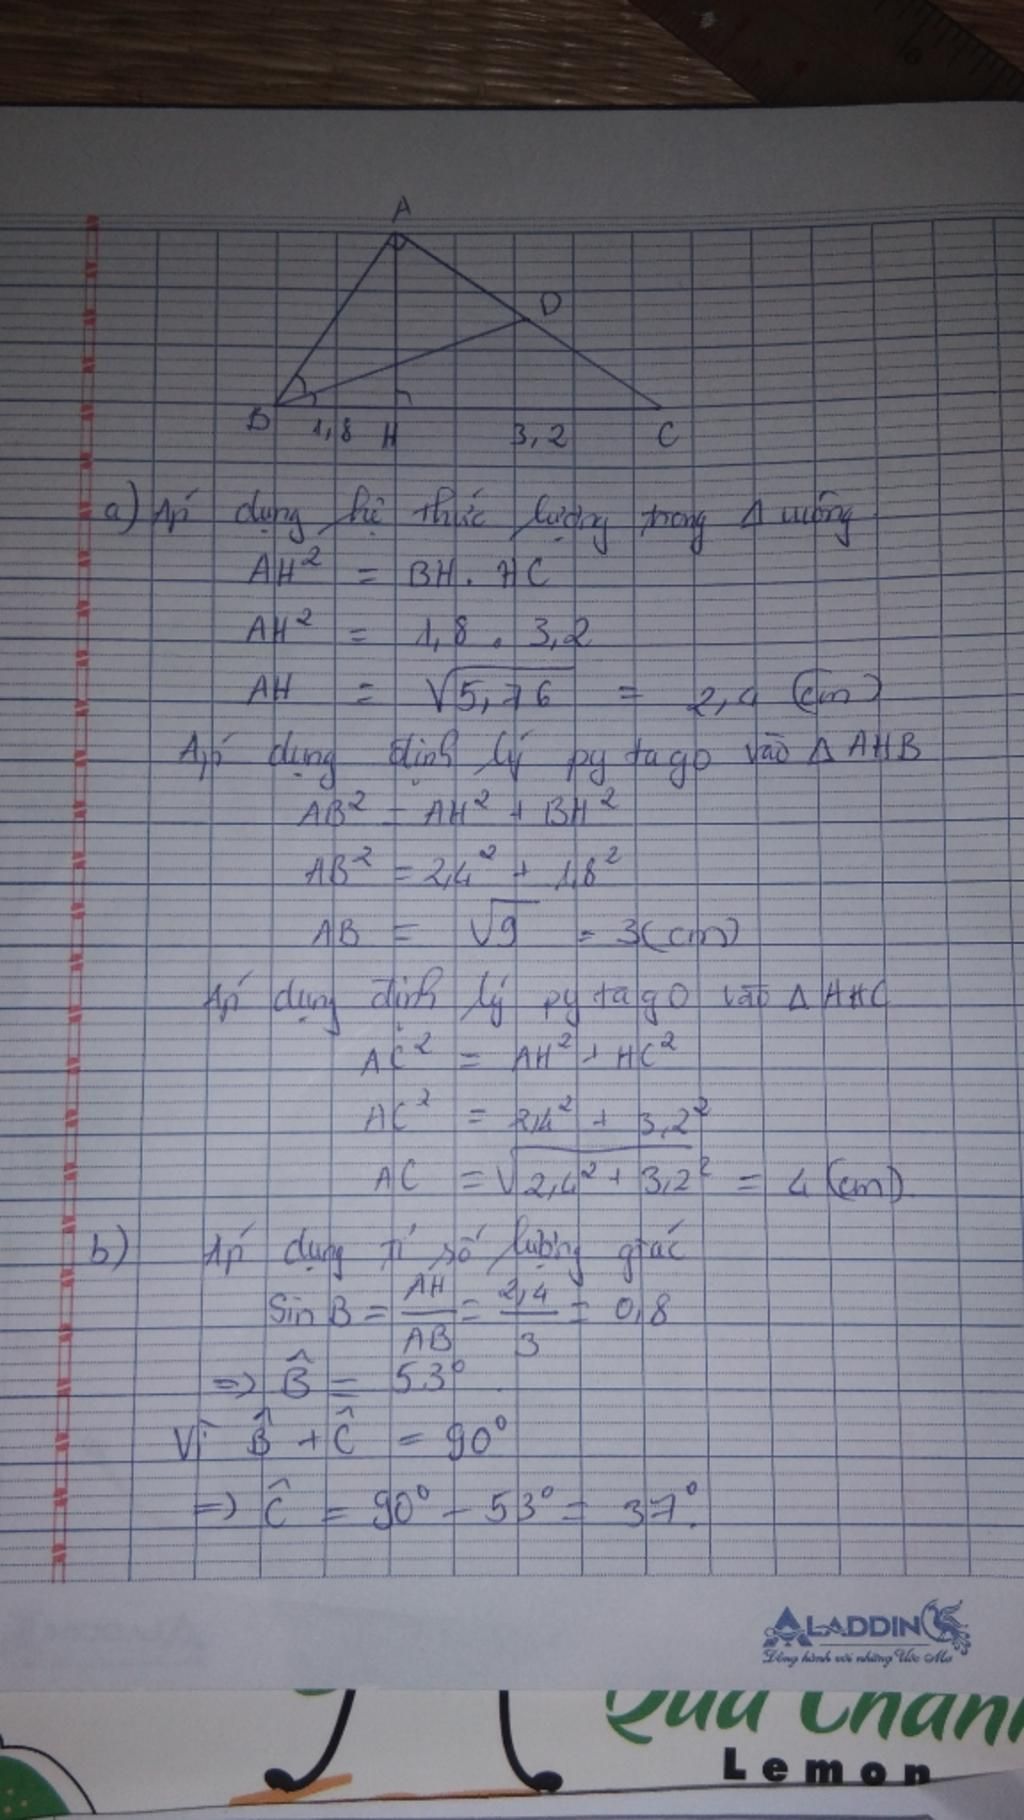 A
D
B 1,8 H 3,2 C
a) Áp dụng hệ thức lượng trong Δ vuông
AH² = BH . HC
AH² = 1,8 . 3,2
AH = √5,76 = 2,4 (cm)
Áp dụng định lý pytago vào Δ AHB
AB² = AH² + BH²
AB² = 2,4² + 1,8²
AB = √9 = 3(cm)
Áp dụng định lý pytago vào Δ AHC
AC² = AH² + HC²
AC² = 2,4² + 3,2²
AC = √2,4² + 3,2² = 4 (cm)
b) Áp dụng tỉ số lượng giác
Sin B = AH/AB = 2,4/3 = 0,8
=> B̂ = 53°
Vì B̂ + Ĉ = 90°
=> Ĉ = 90° - 53° = 37°.
ALADDIN
Đồng hành với những Ước Mơ
Quả Chanh
Lemon